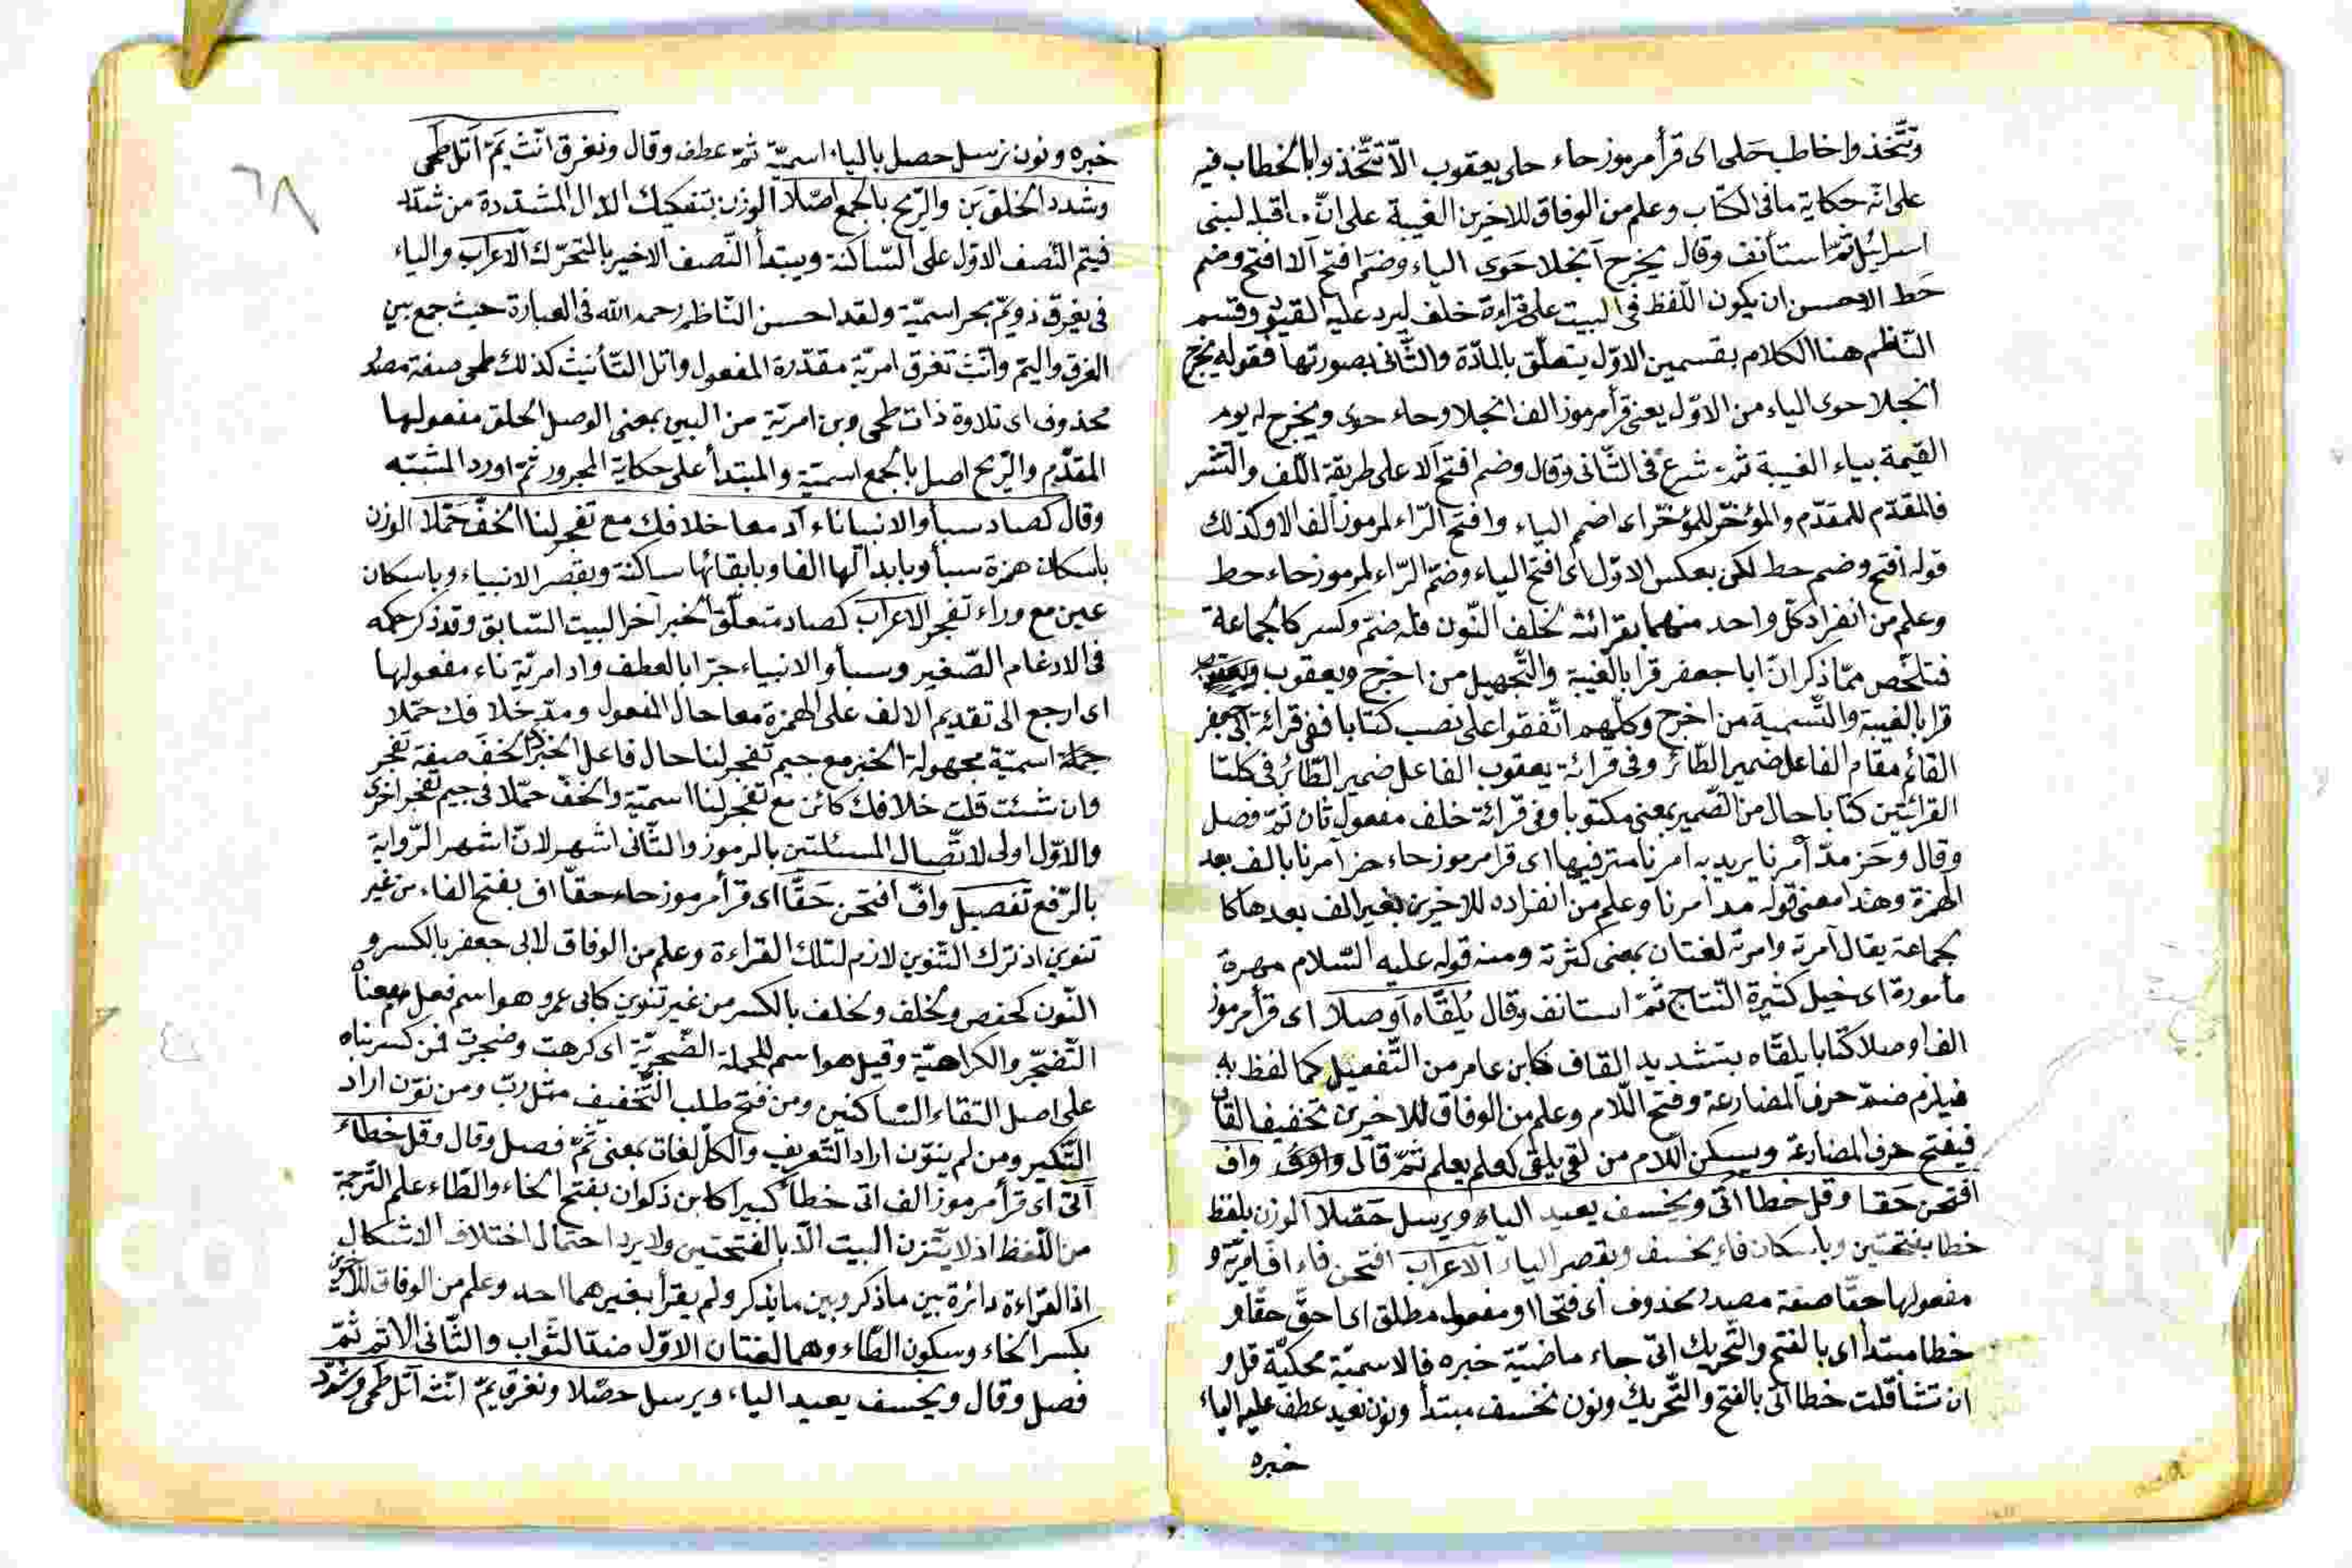 وتتّخذوا خاطب حلى اى قرأ مرموز حاء حلى يعقوب الّا تتّخذوا بالخطاب فيه
على انّه حكاية ما فى الكتاب وعلم من الوفاق للاخرين الغيبة على انّ ما قبله لبنى
اسرائيل ثمّ استأنف وقال يخرج آنجلا حَوى الياء وضمّ افتح آلا افتح وضم
حط الاحسن ان يكون اللّفظ فى البيت على قراءة خلف ليرد عليه القيود وقسم
النّاظم هنا الكلام بقسمين الاوّل يتعلّق بالمادّة والثّانى بصورتها فقوله يخرج
انجلا حوى الياء من الاوّل يعنى قرأ مرموز الف انجلا وحاء حوى ويخرج له يوم
القيمة بياء الغيبة ثمّ شرع فى الثّانى وقال وضم افتح آلا على طريقة اللّف والنّشر
فالمقدّم للمقدّم والمؤخّر للمؤخّر اى اضمم الياء وافتح الرّاء لمرموز الف الا وكذلك
قوله افتح وضم حط لكن بعكس الاوّل اى افتح الياء وضمّ الرّاء لمرموز حاء حط
وعلم من انفراد كلّ واحد منهما بقرائته لخلف النّون فله ضمّ وكسر كالجماعة
فتلخّص ممّا ذكر انّ ابا جعفر قرا بالغيبة والتّجهيل من اخرج ويعقوب
قرا بالغيبة والتّسمية من اخرج وكلّهم اتّفقوا على نصب كتابا ففى قرائة ابى جعفر
القائم مقام الفاعل ضمير الطّائر وفى قرائة يعقوب الفاعل ضمير الطّائر فى كلتا
القرائتين كتابا حال من الضّمير بمعنى مكتوبا وفى قرائة خلف مفعول ثان ثمّ فصل
وقال وحَز مدّ آمرنا يريد به امرنا مترفيها اى قرا مرموز حاء حز آمرنا بالف بعد
الهمزة وهذا معنى قوله مد امرنا وعلم من انفراده للاخرين بغير الف بعدها كا
لجماعة يقال آمرته وامرته لغتان بمعنى كثرته ومنه قوله عليه السّلام مهرة
مأمورة اى خيل كثيرة النّتاج ثمّ استانف وقال يُلقّاه آوصلا اى قرأ مرموز
الف اوصلا كتابا يلقّاه بتشديد القاف كابن عامر من التّفعيل كما لفظ به
فيلزم ضمّ حرف المضارعة وفتح اللّام وعلم من الوفاق للاخرين تخفيف القاف
فيفتح حرف المضارعة ويسكن اللّام من لقى يلقى كعلم يعلم ثمّ قال واف
افتحن حَقا وقل خطا اتى ويخسف يعيد الياء ويرسل حَصّلا الوزن بلفظ
خطا بفتحتين وباسكان فاء يخسف وبقصر الياء الاعراب افتحن فاء اف امريّة و
مفعولها حقّا صفة مصدر محذوف أى فتحا او مفعول مطلق اى احقّ حقّا و
خطا مبتدأ اى بالفتح والتّحريك اتى جاء ماضيّة خبره فالاسميّة محكيّة قل و
ان تشأ قلت خطا اتى بالفتح والتّحريك ونون نخسف مبتدأ ونون نعيد عطف عليه الياء
خبره
خبره ونون نرسل حصل بالياء اسميّة ثمّ عطف وقال ونغرق انّث يَمّ آتل طمى
وشدد الخلق بَن والرّيح بالجمع اصّلا الوزن بتفكيك الدّال المشدّدة من شدّد
فيتم النّصف الاوّل على السّاكنة ويبتدأ النّصف الاخير بالمتحرّك الاعراب والياء
فى يغرق ذويمّ بحر اسميّة ولقد احسن النّاظم رحمه الله فى العبارة حيث جمع بين
الغرق واليمّ وانّث تغرق امريّة مقدّرة المفعول واتل التّأنيث كذلك طمى صفة مصدر
محذوف اى تلاوة ذات طمى وبن امريّة من البين بمعنى الوصل الخلق مفعولها
المقدّم والرّيح اصل بالجمع اسميّة والمبتدأ على حكاية المجرور ثمّ اورد المشبّه
وقال كصاد سبأ والانبيا ناء آد معا خلافك مع تفجر لنا الخفّ حُمّلا الوزن
باسكان همزة سبأ وبابدالها الفا وبابقائها ساكنة وبقصر الانبياء وباسكان
عين مع وراء تفجر الاعراب كصاد متعلّق الخبر آخر البيت السّابق وقد ذكر حكمه
فى الادغام الصّغير وسبأ والانبياء جرّا بالعطف واد امريّة ناء مفعولها
اى ارجع الى تقديم الالف على الهمزة معا حال المفعول ومدّ خلافك حمّلا
جملة اسميّة مجهولة الخبر مع جيم تفجر لنا حال فاعل الخبر الخفّ صفة تفجر
وان شئت قلت خلافك كائن مع تفجر لنا اسميّة والخفّ حمّلا فى جيم تفجر اخرى
والاوّل اولى لاتّصال المسئلتين بالرموز والثّانى اشهر لانّ اشهر الرّواية
بالرّفع تفصيل وافّ افتحن حَقّا اى قرأ مرموز حاء حقّا اف بفتح الفاء من غير
تنوين اذ ترك التّنوين لازم لتلك القراءة وعلم من الوفاق لابى جعفر بالكسر و
النّون كحفص ولخلف بالكسر من غير تنوين كابى عمرو وهو اسم فعل معناه
التّضجّر والكراهيّة وقيل هو اسم للجملة الضّجريّة اى كرهت وضجرت فمن كسر بناه
على اصل التقاء السّاكنين ومن فتح طلب التّخفيف مثل ربّ ومن نوّن اراد
التّنكير ومن لم ينوّن اراد التّعريف والكلّ لغات بمعنى ثمّ فصل وقال وقل خطاء
آتى اى قرأ مرموز الف اتى خطأ كبيرا كابن ذكوان بفتح الخاء والطّاء علم التّرجمة
من اللّفظ اذ لا يتّزن البيت الّا بالفتحتين ولا يرد احتمال اختلاف الاشكال
اذ القراءة دائرة بين ما ذكر وبين ما يذكر ولم يقرأ بغيرهما احد وعلم من الوفاق للاخرين
بكسر الخاء وسكون الطّاء وهما لغتان الاوّل ضدّ الثّواب والثّانى الاثم ثمّ
فصل وقال ويخسف يعيد الياء ويرسل حصّلا ونغرق يمّ انّث آتل طمى وشدّد
٦٨